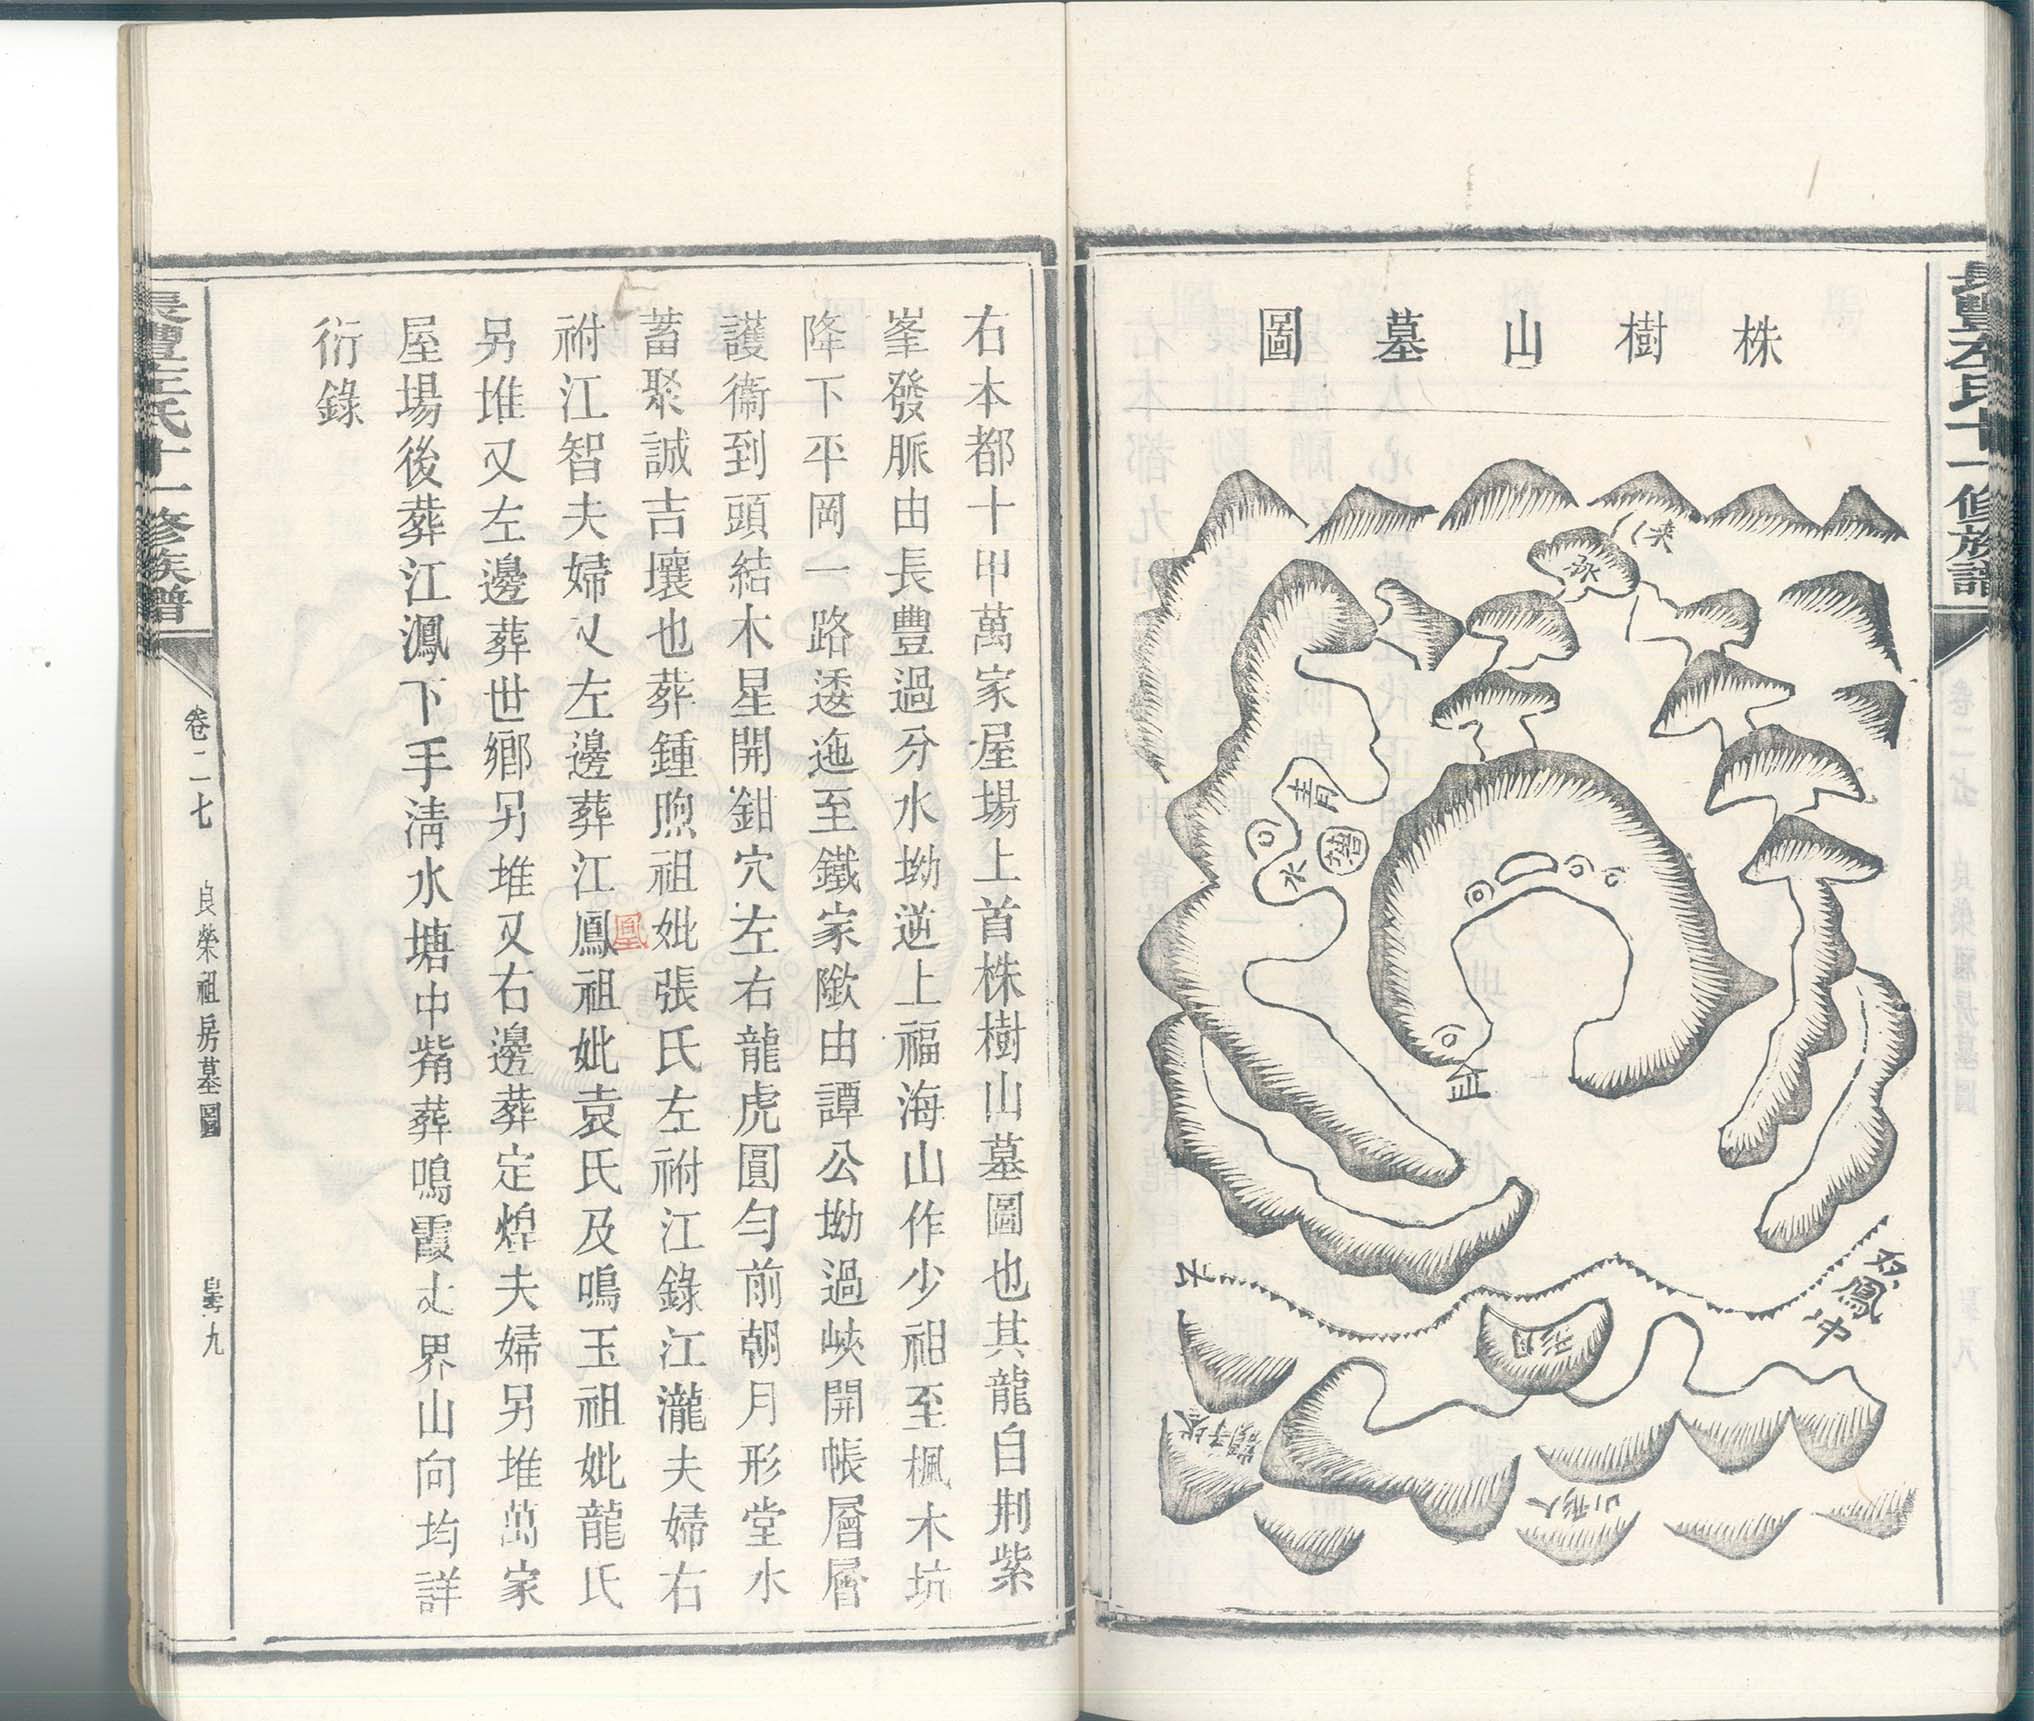 長豐左氏十一修族譜
株樹山墓圖
来
承
青
水
月
双鳳冲
去
月形
獅子坐
人形山
右本都十甲萬家屋場上首株樹山墓圖也其龍自荆紫
峯發脈由長豐過分水坳逆上福海山作少祖至楓木坑
降下平岡一路逶迤至鐵家隞由譚公坳過峽開帳層層
護衞到頭結木星開鉗穴左右龍虎圓勻前朝月形堂水
蓄聚誠吉壤也葬鍾煦祖妣張氏左祔江錄江瀧夫婦右
祔江智夫婦又左邊葬江鳳祖妣袁氏及鳴玉祖妣龍氏
凰
另堆又左邊葬世鄉另堆又右邊葬定煌夫婦另堆萬家
屋場後葬江澷下手淸水塘中觜葬鳴霞丈界山向均詳
衍錄
長豐左氏十一修族譜
卷二七
良榮祖房墓圖
九